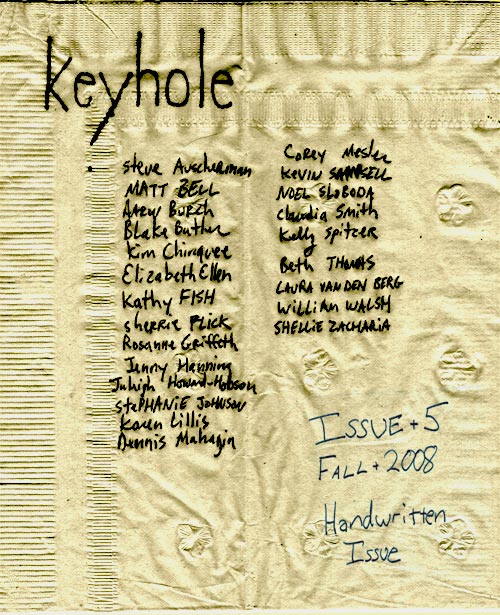 Keyhole
Steve Auscherman
MATT BELL
Aaron Burch
Blake Butler
Kim Chinquee
Elizabeth Ellen
Kathy FISH
Sherrie Flick
Rosanne Griffeth
Jenny Hanning
Juleigh Howard-Hobson
StePHANiE JoHNSON
Karen Lillis
Dennis Mahagin
Corey Mesler
KEVIN SAMPSELL
NOEL SLOBODA
Claudia Smith
Kelly Spitzer
Beth THOMAS
LAURA VAN DEN BERG
WILLIAM WALSH
SHELLIE ZACHARIA
ISSUE + 5
FALL + 2008
Handwritten
Issue